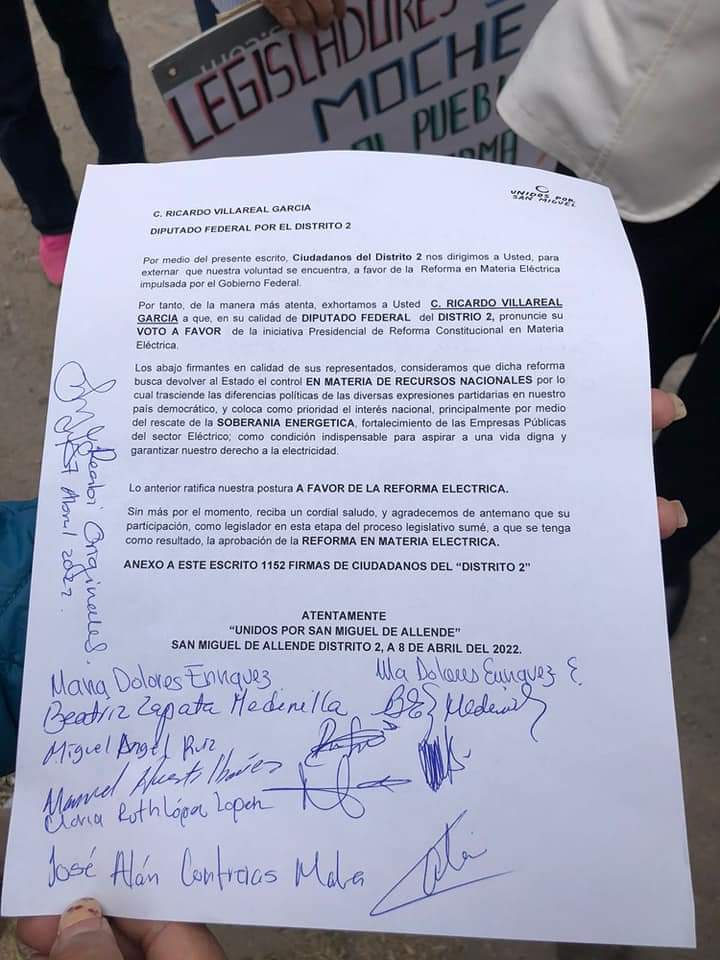 LEGISLADORES
MOCHE
AL PUEBL
UNIDOS POR
SAN MIGUEL
C. RICARDO VILLAREAL GARCIA
DIPUTADO FEDERAL POR EL DISTRITO 2
Por medio del presente escrito, Ciudadanos del Distrito 2 nos dirigimos a Usted, para
externar que nuestra voluntad se encuentra, a favor de la Reforma en Materia Eléctrica
impulsada por el Gobierno Federal.
Por tanto, de la manera más atenta, exhortamos a Usted C. RICARDO VILLAREAL
GARCIA a que, en su calidad de DIPUTADO FEDERAL del DISTRIO 2, pronuncie su
VOTO A FAVOR de la iniciativa Presidencial de Reforma Constitucional en Materia
Eléctrica.
Los abajo firmantes en calidad de sus representados, consideramos que dicha reforma
busca devolver al Estado el control EN MATERIA DE RECURSOS NACIONALES por lo
cual trasciende las diferencias políticas de las diversas expresiones partidarias en nuestro
país democrático, y coloca como prioridad el interés nacional, principalmente por medio
del rescate de la SOBERANIA ENERGETICA, fortalecimiento de las Empresas Públicas
del sector Eléctrico; como condición indispensable para aspirar a una vida digna y
garantizar nuestro derecho a la electricidad.
Lo anterior ratifica nuestra postura A FAVOR DE LA REFORMA ELECTRICA.
Sin más por el momento, reciba un cordial saludo, y agradecemos de antemano que su
participación, como legislador en esta etapa del proceso legislativo sumé, a que se tenga
como resultado, la aprobación de la REFORMA EN MATERIA ELECTRICA.
ANEXO A ESTE ESCRITO 1152 FIRMAS DE CIUDADANOS DEL “DISTRITO 2”
ATENTAMENTE
“UNIDOS POR SAN MIGUEL DE ALLENDE”
SAN MIGUEL DE ALLENDE DISTRITO 2, A 8 DE ABRIL DEL 2022.
Recibi Originales.
Abril 2022.
Maria Dolores Enriquez
Ma Dolores Enriquez E.
Beatriz Zapata Medinilla
Miguel Angel Ruiz
Manuel
Ruth López Lopez
José Alán Contreras Mata